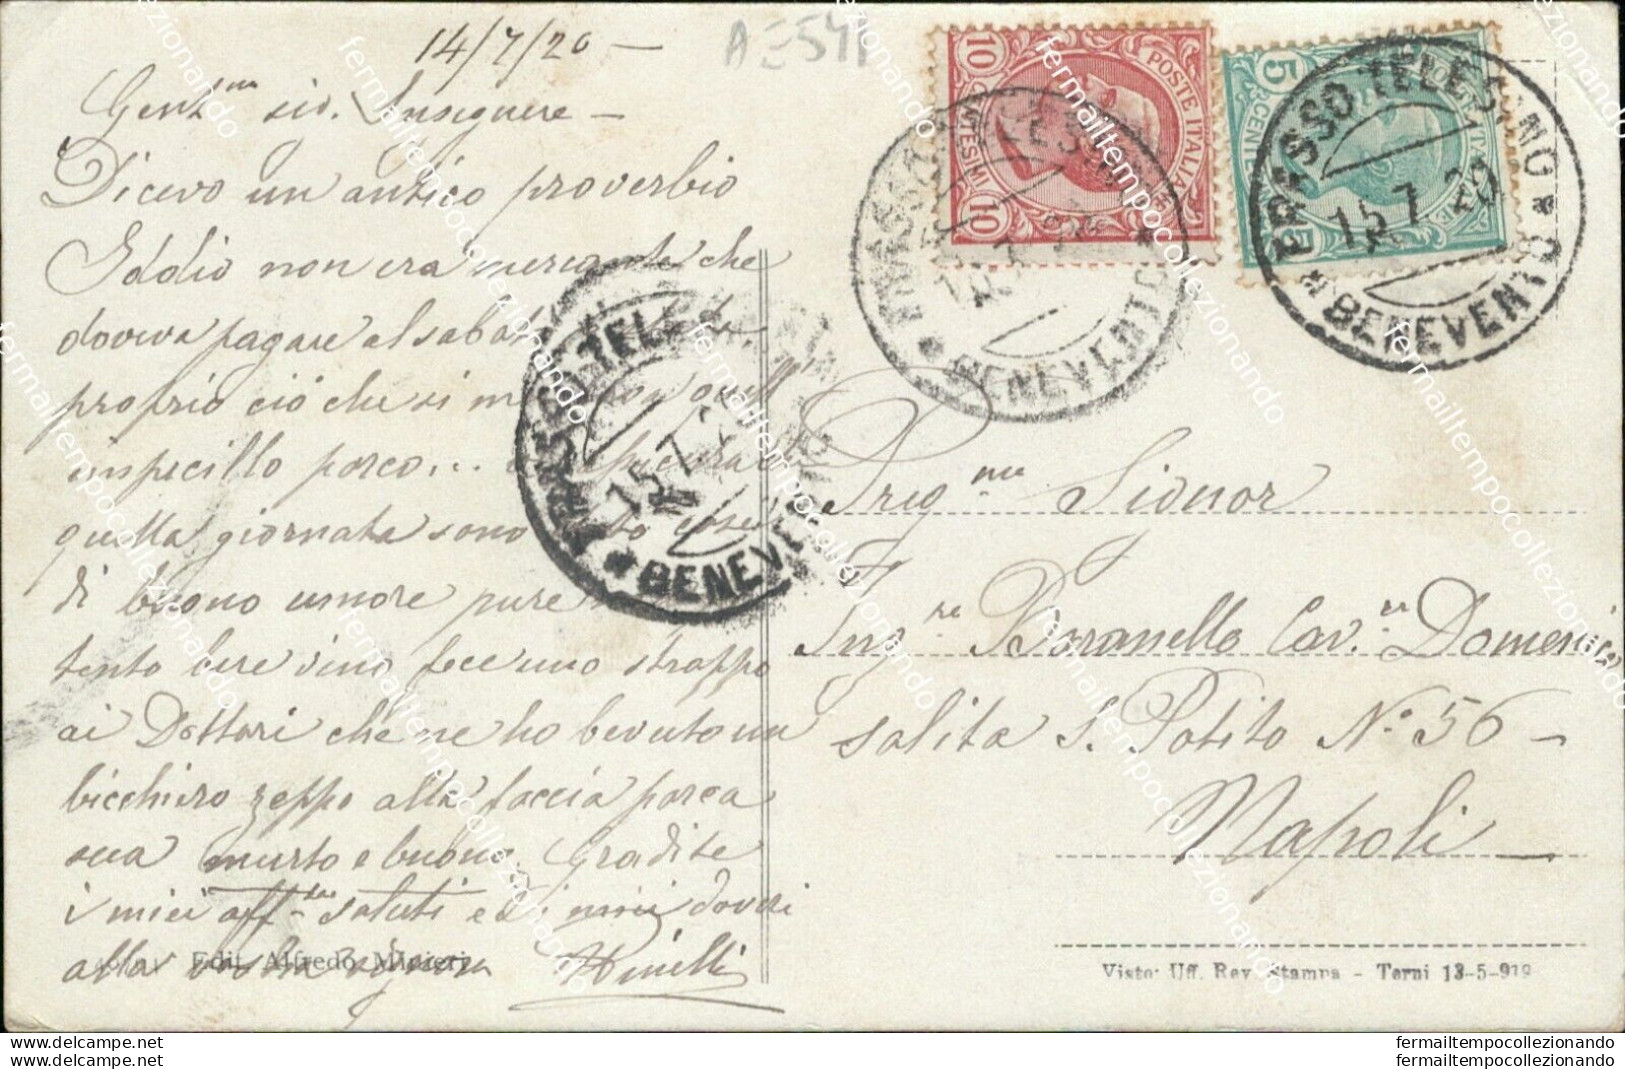 14/7/20 —
AE541
Gent.mo sig. Insegnere —
Dicevo un antico proverbio
Iddio non era mercante che
doveva pagare al sabato
proprio ciò che si
porco...
quella giornata sono
di buono umore pure
tento bere vino fece uno strappo
ai Dottori che ne ho bevuto un
bicchiero zeppo alla faccia porca
sua murto e buono. Gradite
i miei aff.si saluti e i miei doveri
alla vostra signora
Edit. Alfredo Minieri
POSTE ITALIANE
10 CENTESIMI 10
5 CENT 5
FRASSO TELESINO
15.7.20
* BENEVENTO *
FRASSO TELESINO
BENEVENTO
FRASSO TELESINO
15.7.20
* BENEVENTO
Preg.mo Signor
Ing.re Boranello Cav.er Domenico
salita S. Potito N.° 56 —
Napoli —
Visto: Uff. Rev. Stampa - Terni 13-5-919
fermailtempocollezionando
fermailtempocollezionando